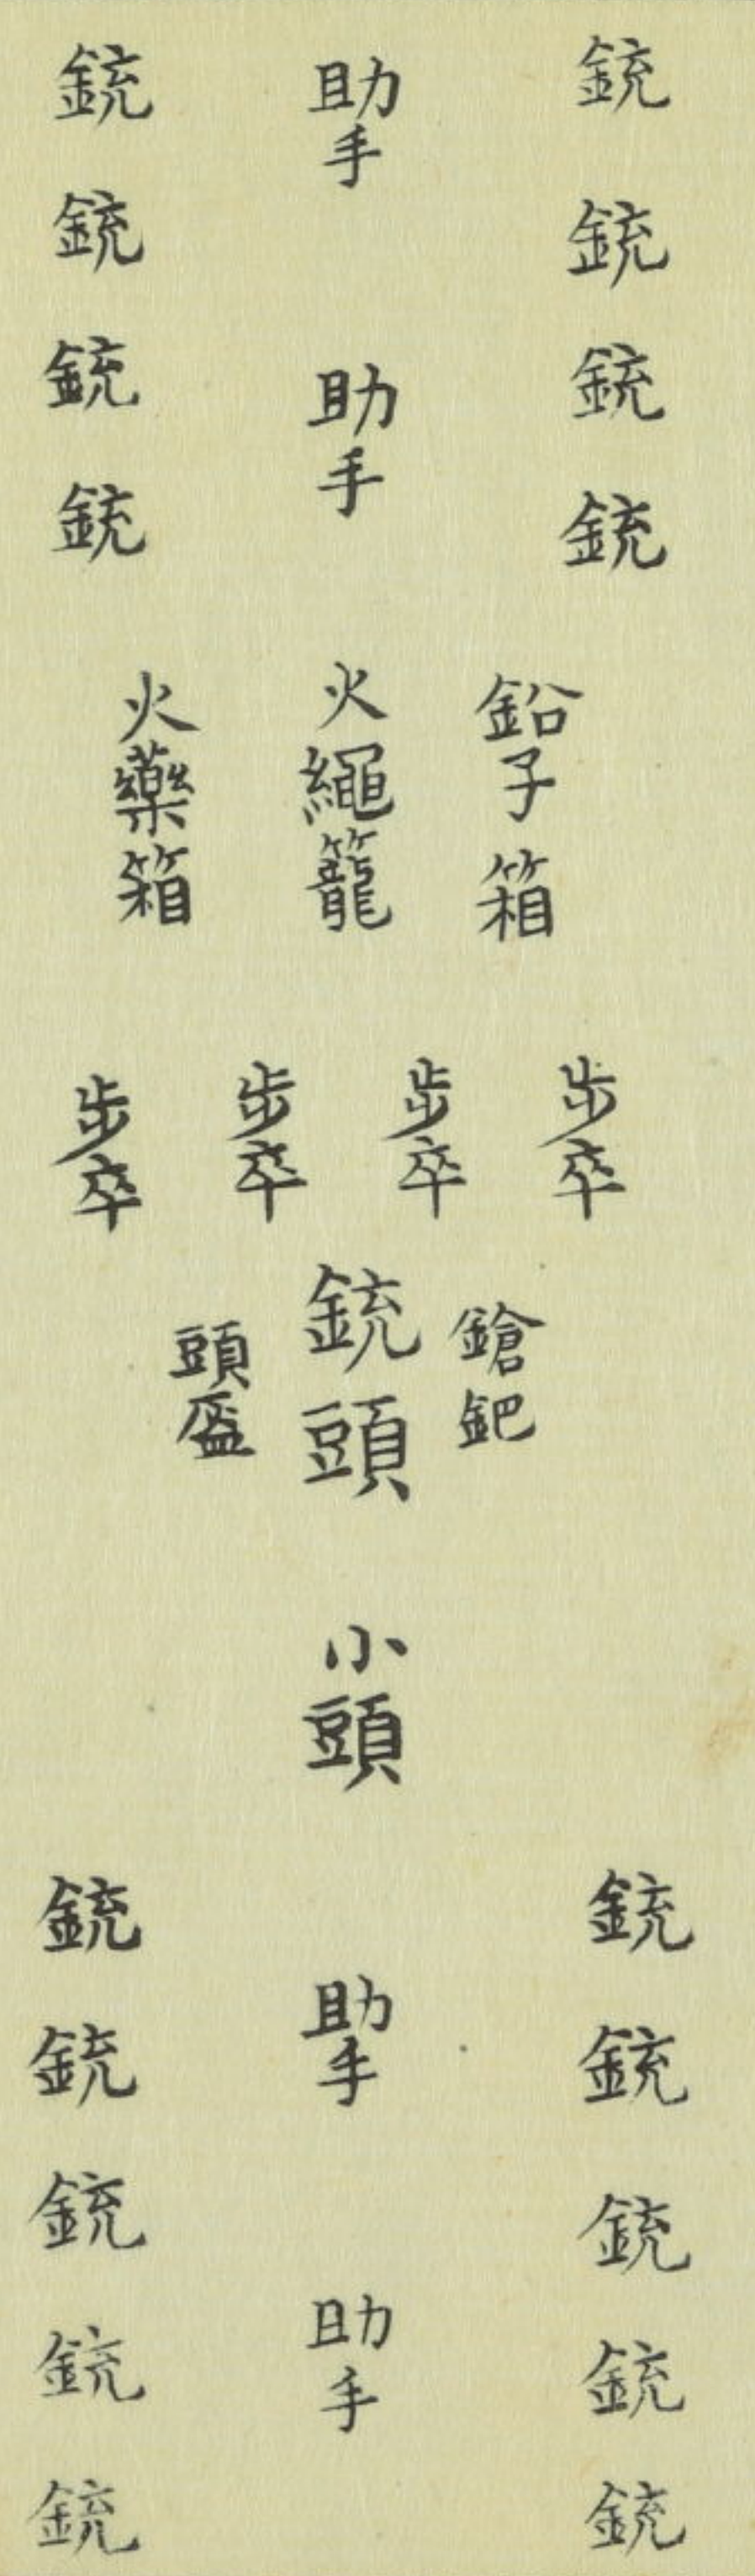 銃
銃
銃
銃
助手
助手
銃
銃
銃
銃
鉛子箱
火繩籠
火藥箱
步卒
步卒
步卒
步卒
鎗鈀
銃頭
頭盔
小頭
銃
銃
銃
銃
銃
助手
助手
銃
銃
銃
銃
銃